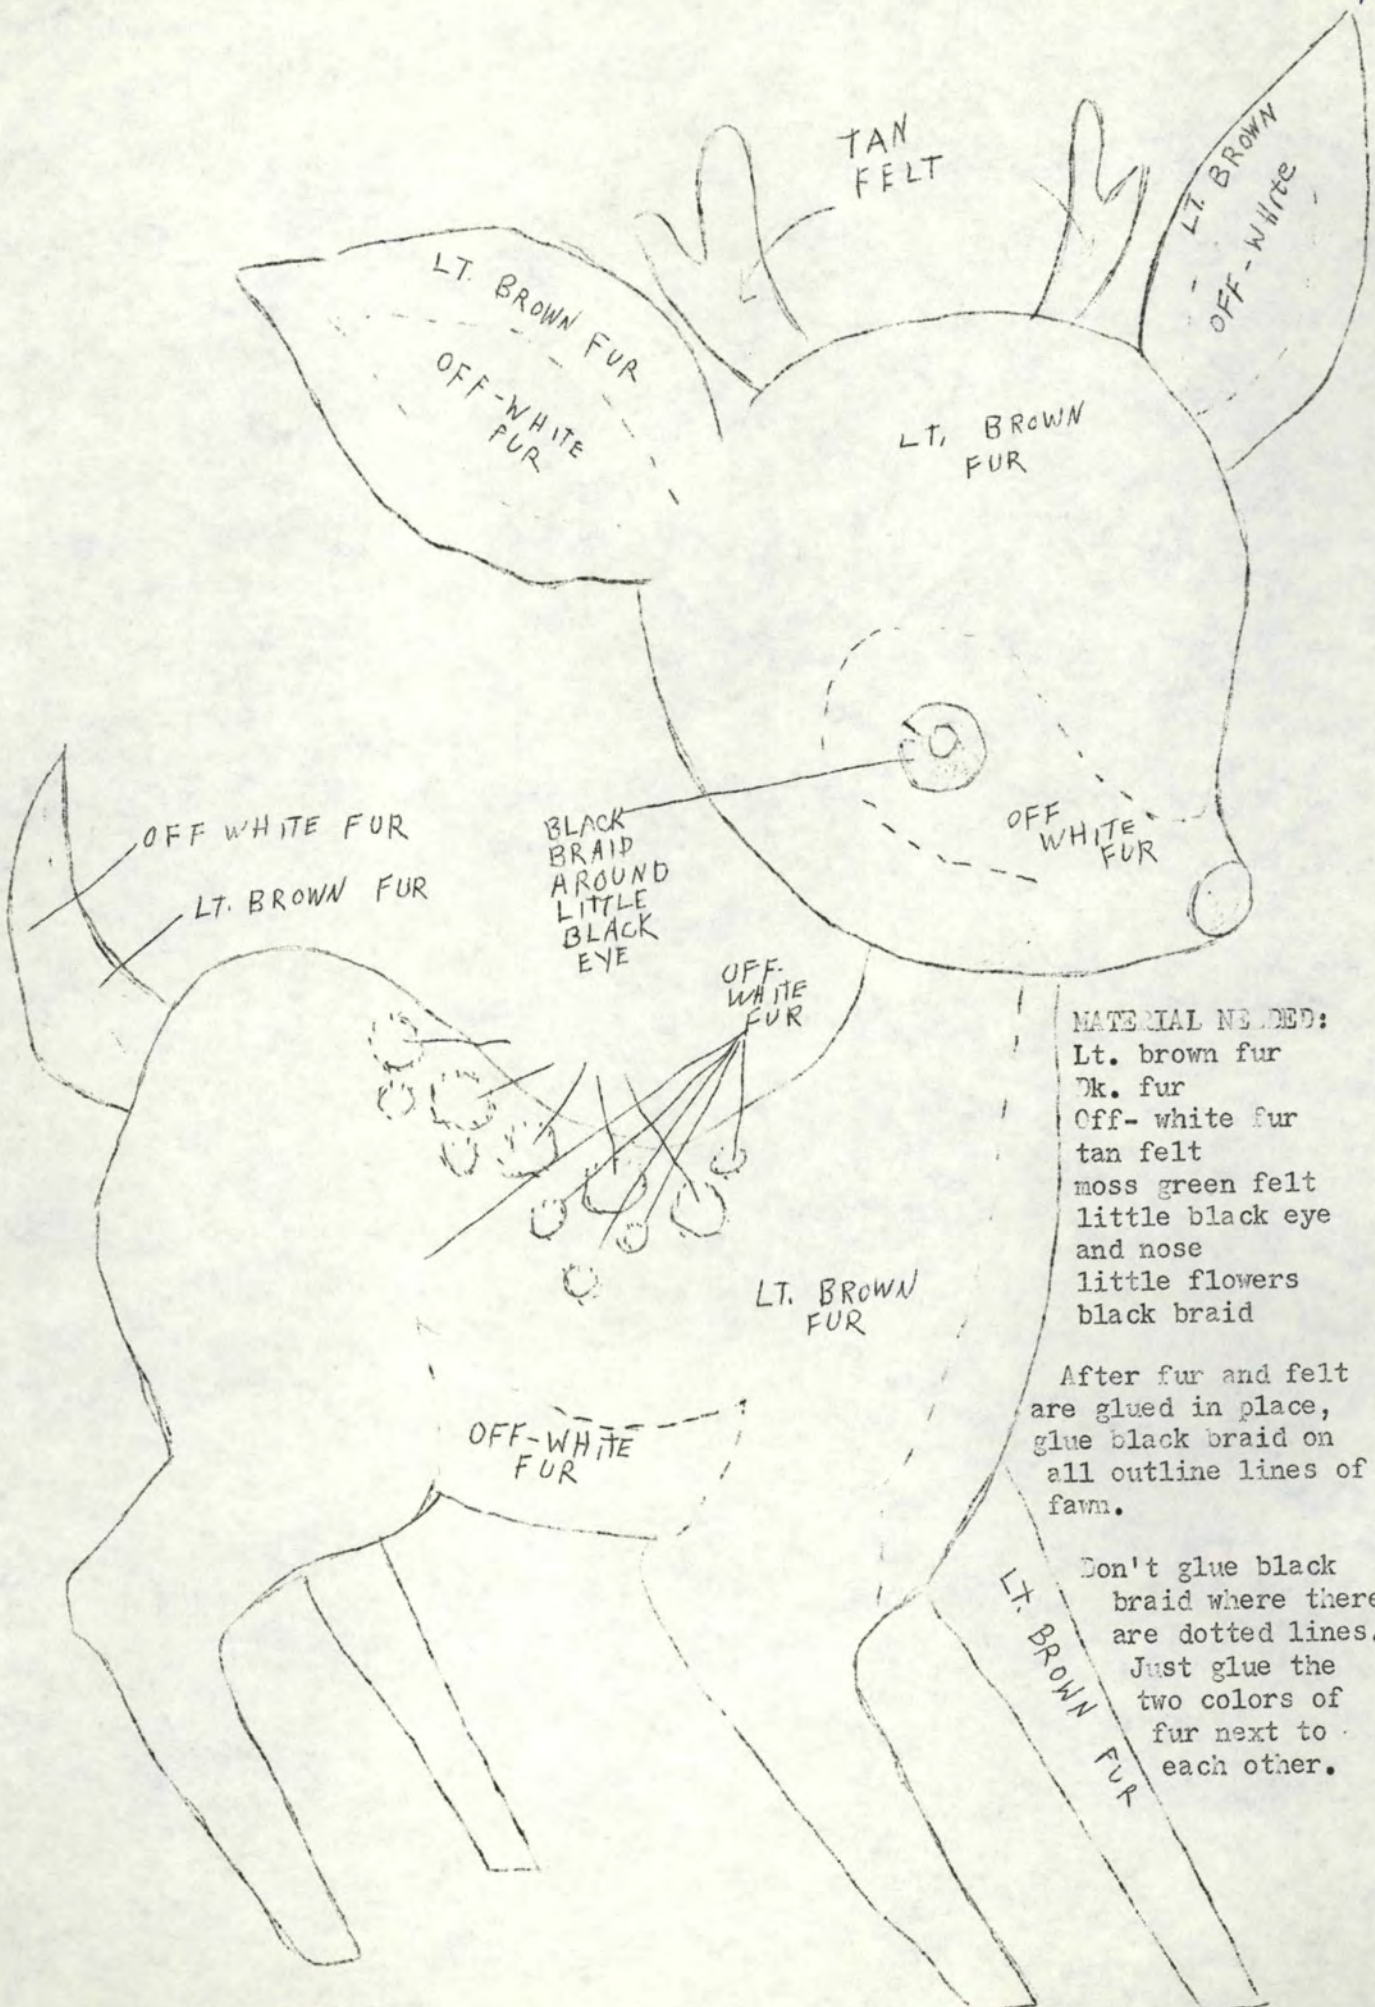 TAN
FELT
LT. BROWN
OFF-WHITE
LT. BROWN FUR
OFF-WHITE
FUR
LT. BROWN
FUR
OFF WHITE FUR
LT. BROWN FUR
BLACK
BRAID
AROUND
LITTLE
BLACK
EYE
OFF
WHITE
FUR
OFF-
WHITE
FUR
LT. BROWN
FUR
OFF-WHITE
FUR
LT. BROWN FUR
MATERIAL NEEDED:
Lt. brown fur
Dk. fur
Off- white fur
tan felt
moss green felt
little black eye
and nose
little flowers
black braid
After fur and felt
are glued in place,
glue black braid on
all outline lines of
fawn.
Don't glue black
braid where there
are dotted lines.
Just glue the
two colors of
fur next to
each other.